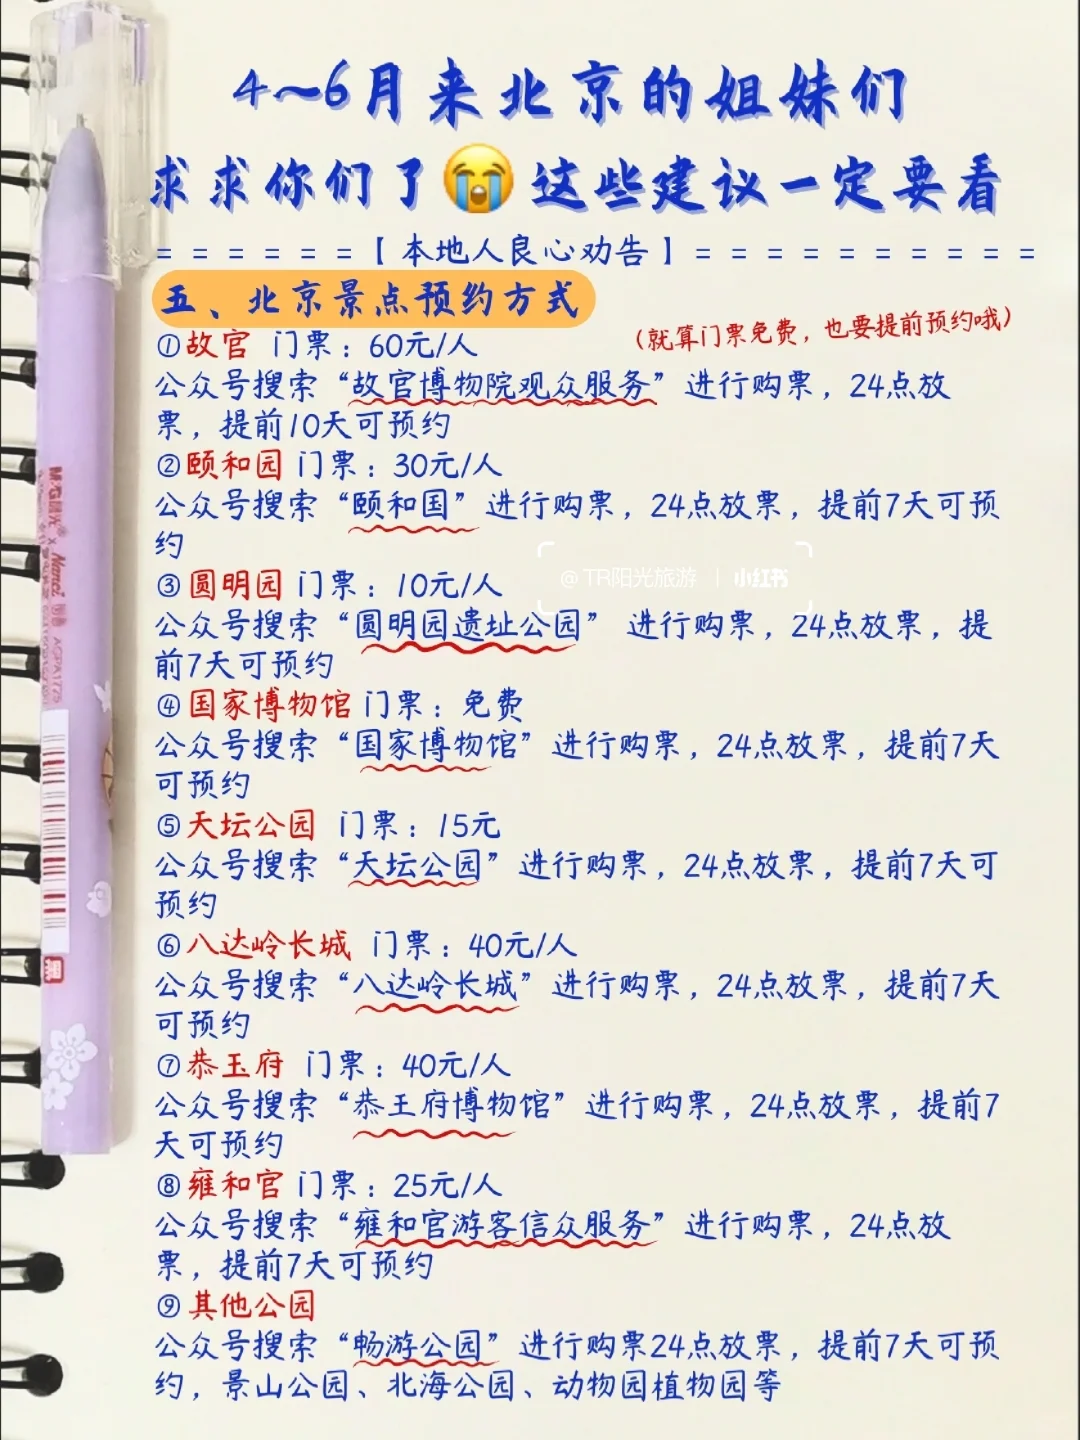 4~6月来北京的姐妹们
求求你们了😭这些建议一定要看
======【本地人良心劝告】==========
五、北京景点预约方式
(就算门票免费，也要提前预约哦)
①故宫 门票：60元/人
公众号搜索“故宫博物院观众服务”进行购票，24点放
票，提前10天可预约
②颐和园 门票：30元/人
公众号搜索“颐和国”进行购票，24点放票，提前7天可预
约
@TR阳光旅游 | 小红书
③圆明园 门票：10元/人
公众号搜索“圆明园遗址公园” 进行购票，24点放票，提
前7天可预约
④国家博物馆 门票：免费
公众号搜索“国家博物馆”进行购票，24点放票，提前7天
可预约
⑤天坛公园 门票：15元
公众号搜索“天坛公园”进行购票，24点放票，提前7天可
预约
⑥八达岭长城 门票：40元/人
公众号搜索“八达岭长城”进行购票，24点放票，提前7天
可预约
⑦恭王府 门票：40元/人
公众号搜索“恭王府博物馆”进行购票，24点放票，提前7
天可预约
⑧雍和宫 门票：25元/人
公众号搜索“雍和宫游客信众服务”进行购票，24点放
票，提前7天可预约
⑨其他公园
公众号搜索“畅游公园”进行购票24点放票，提前7天可预
约，景山公园、北海公园、动物园植物园等
M&G晨光 x Nanci
AGPA1775